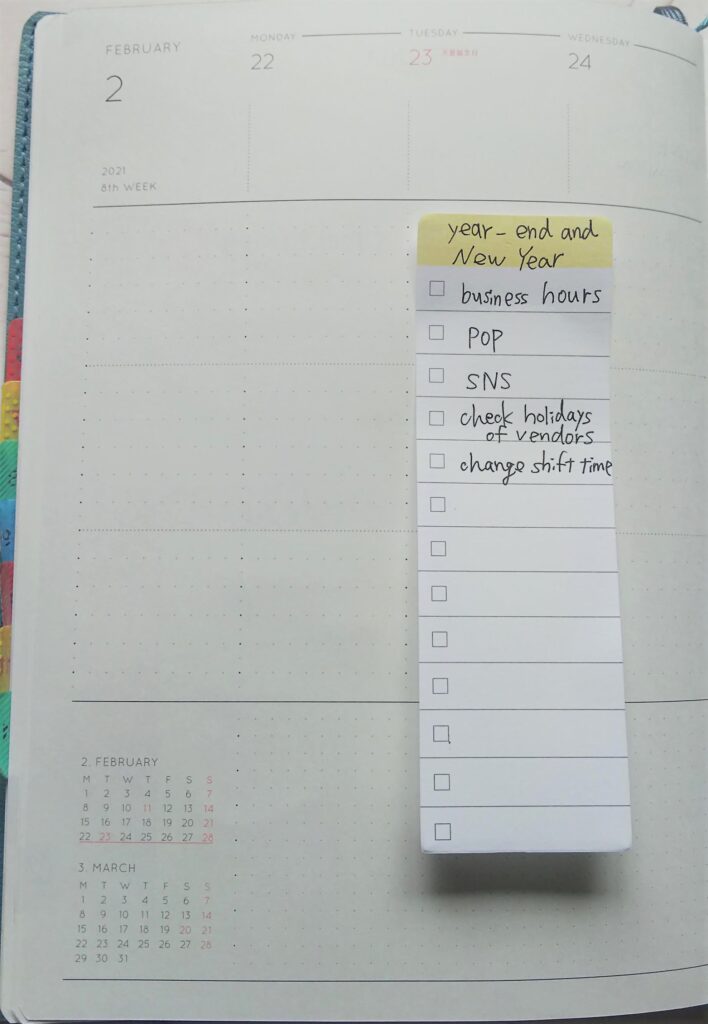 FEBRUARY
2
2021
8th WEEK
MONDAY
22
TUESDAY
23 天皇誕生日
WEDNESDAY
24
year-end and
New Year
business hours
POP
SNS
check holidays
of vendors
change shift time
2. FEBRUARY
M T W T F S S
1 2 3 4 5 6 7
8 9 10 11 12 13 14
15 16 17 18 19 20 21
22 23 24 25 26 27 28
3. MARCH
M T W T F S S
1 2 3 4 5 6 7
8 9 10 11 12 13 14
15 16 17 18 19 20 21
22 23 24 25 26 27 28
29 30 31